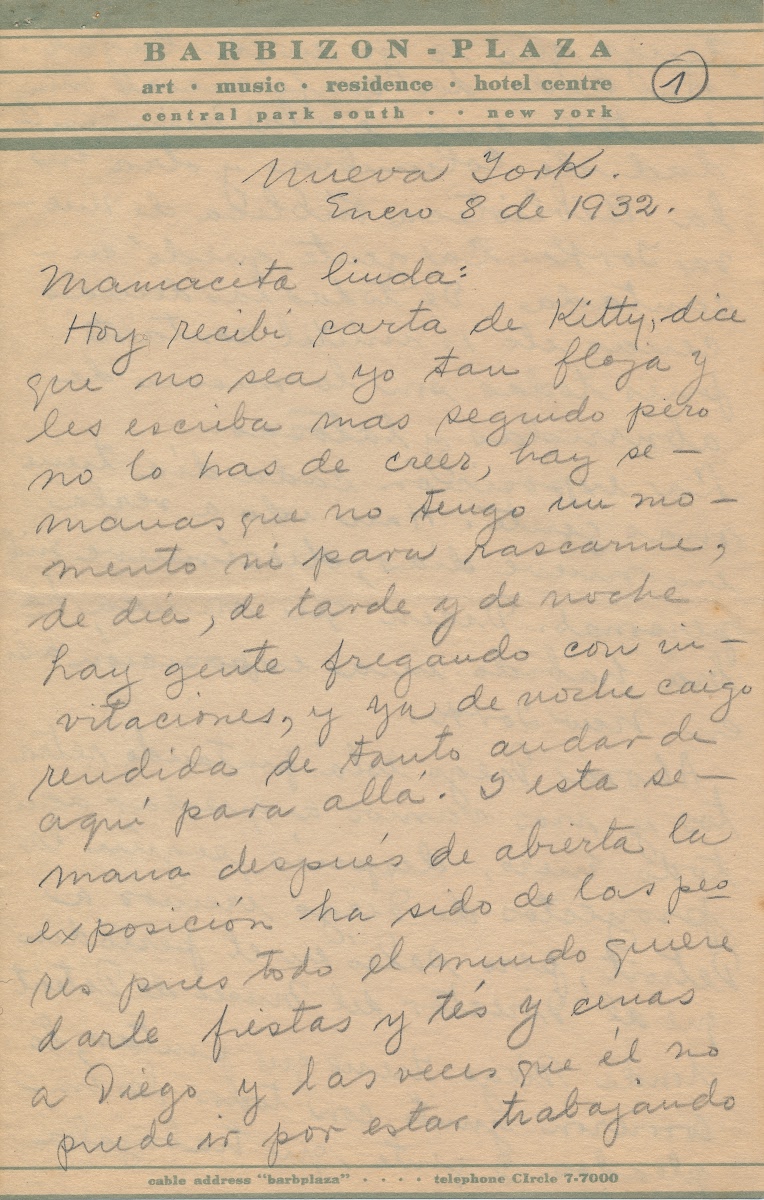 BARBIZON-PLAZA
art · music · residence · hotel centre
central park south · · new york
1
Nueva York.
Enero 8 de 1932.
Mamacita linda:
Hoy recibí carta de Kitty, dice
que no sea yo tan floja y
les escriba mas seguido pero
no lo has de creer, hay se-
manas que no tengo un mo-
mento ni para rascarme,
de día, de tarde y de noche
hay gente fregando con in-
vitaciones, y ya de noche caigo
rendida de tanto andar de
aquí para allá. I esta se-
mana después de abierta la
exposición ha sido de las peo
res pues todo el mundo quiere
darle fiestas y tés y cenas
a Diego y las veces que él no
puede ir por estar trabajando
cable address "barbplaza" · · · · telephone CIrcle 7-7000